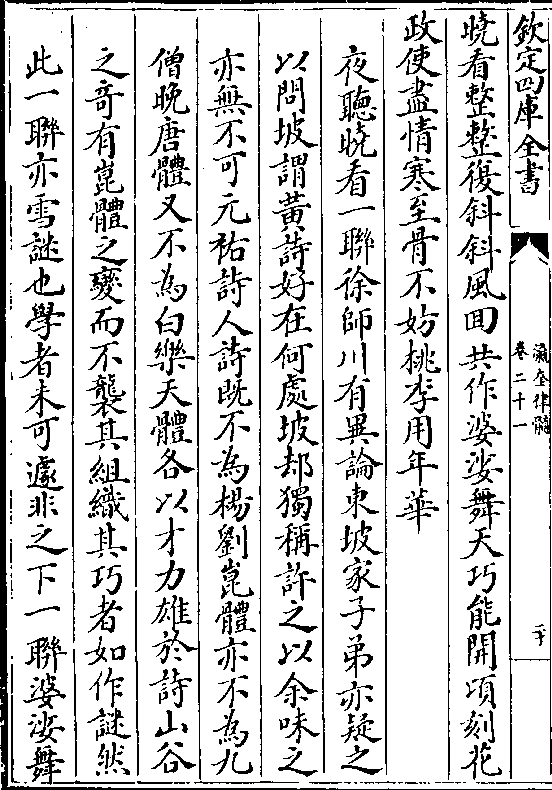 欽定四庫全書
瀛奎律髓
卷二十一
二十
曉看整整復斜斜風囬共作婆娑舞天巧能開頃刻花
政使盡情寒至骨不妨桃李用年華
夜聽曉看一聯徐師川有異論東坡家子弟亦疑之
以問坡謂黄詩好在何處坡却獨稱許之以余味之
亦無不可元祐詩人詩既不為楊劉崑體亦不為九
僧晩唐體又不為白樂天體各以才力雄於詩山谷
之奇有崑體之變而不襲其組織其巧者如作謎然
此一聯亦雪謎也學者未可遽非之下一聯婆娑舞